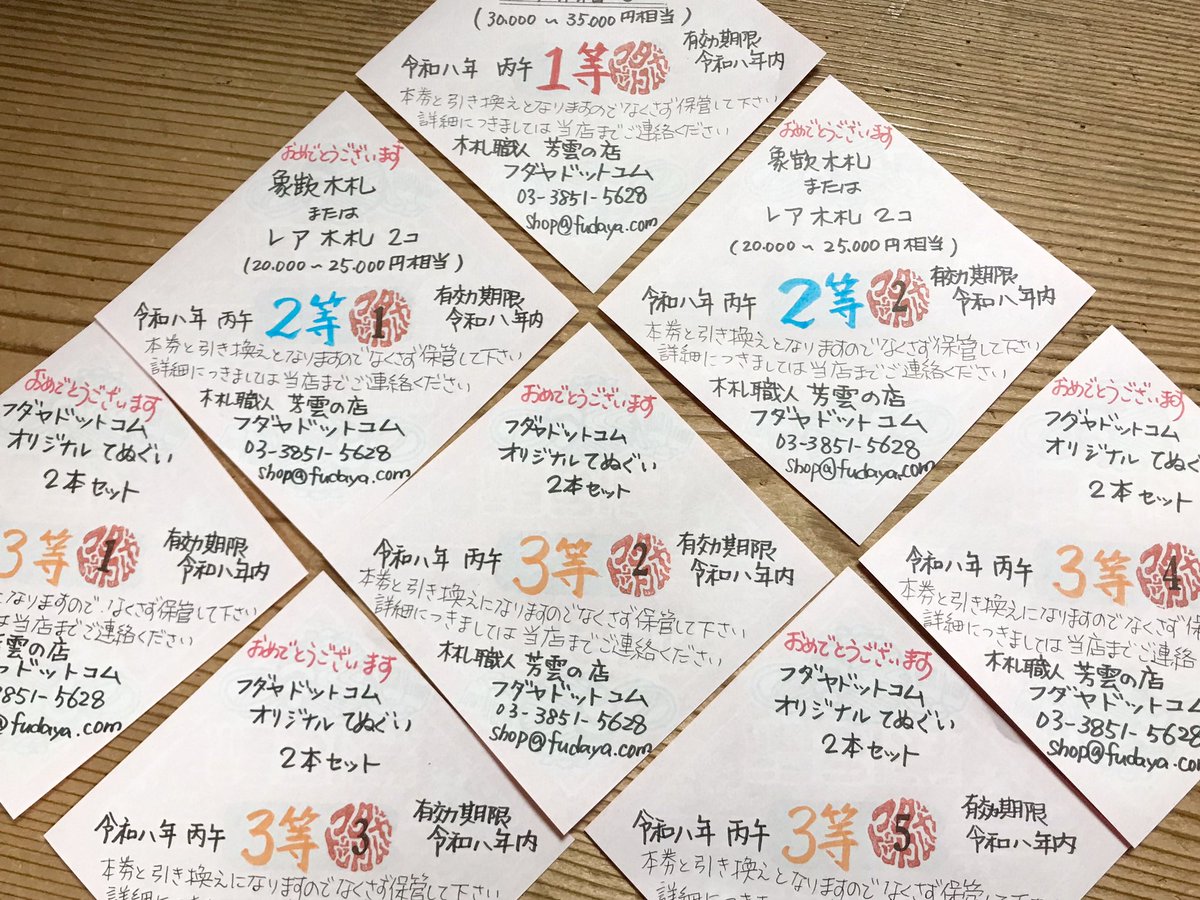 (30.000～35.000円相当)
令和八年 丙午 1等
有効期限
令和八年内
本券と引き換えとなりますのでなくさず保管して下さい
詳細につきましては当店までご連絡ください
木札職人 芳雲の店
フダヤドットコム
03-3851-5628
shop@fudaya.com
おめでとうございます
象嵌木札
または
レア木札 2コ
(20.000～25.000円相当)
令和八年 丙午 2等 1
有効期限
令和八年内
本券と引き換えとなりますのでなくさず保管して下さい
詳細につきましては当店までご連絡ください
木札職人 芳雲の店
フダヤドットコム
03-3851-5628
shop@fudaya.com
おめでとうございます
象嵌木札
または
レア木札 2コ
(20.000～25.000円相当)
令和八年 丙午 2等 2
有効期限
令和八年内
本券と引き換えとなりますのでなくさず保管して下さい
詳細につきましては当店までご連絡ください
木札職人 芳雲の店
フダヤドットコム
03-3851-5628
shop@fudaya.com
おめでとうございます
フダヤドットコム
オリジナルてぬぐい
2本セット
3等 1
有効期限
令和八年内
になりますので、なくさず保管して下さい
は当店までご連絡ください
雲の店
ドットコム
3851-5628
@fudaya.com
おめでとうございます
フダヤドットコム
オリジナルてぬぐい
2本セット
令和八年 丙午 3等 2
有効期限
令和八年内
本券と引き換えになりますのでなくさず保管して下さい
詳細につきましては当店までご連絡ください
木札職人 芳雲の店
フダヤドットコム
03-3851-5628
shop@fudaya.com
おめでとうございます
フダヤドットコム
オリジナルてぬぐ
2本セット
令和八年 丙午 3等 4
本券と引き換えになりますのでなくさず保
詳細につきましては当店までご連絡
木札職人 芳雲の店
フダヤドットコム
03-3851-5628
shop@fudaya.co
おめでとうございます
フダヤドットコム
オリジナルてぬぐい
2本セット
令和八年 丙午 3等 3
有効期限
令和八年内
本券と引き換えになりますのでなくさず保管して下さい
おめでとうございます
フダヤドットコム
オリジナルてぬぐい
2本セット
令和八年 丙午 3等 5
有効期限
令和八年内
本券と引き換えになりますのでなくさず保管して下さい